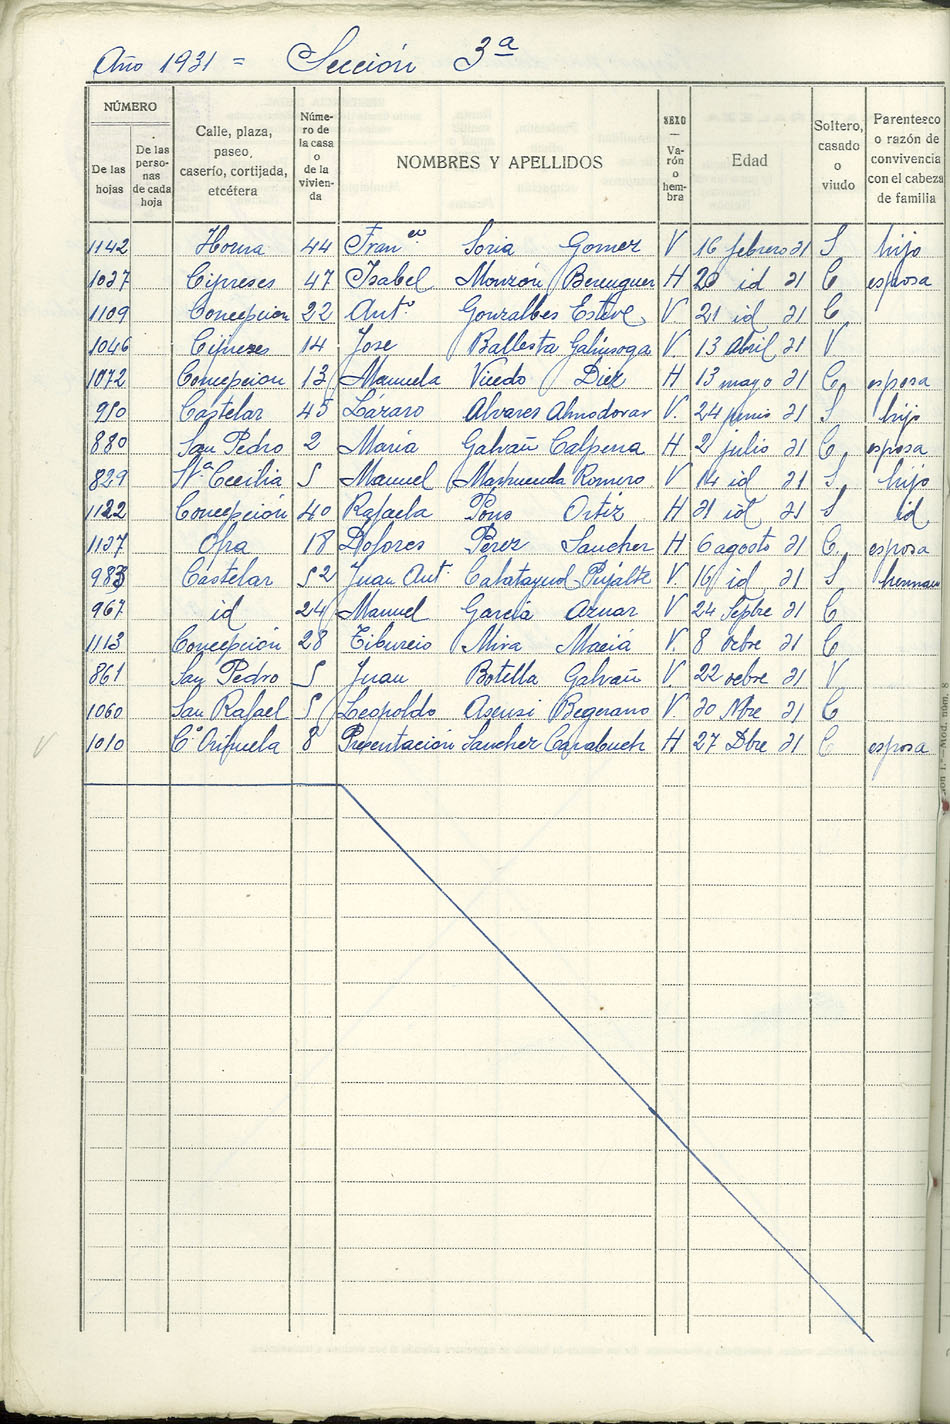 Año 1931 = Sección 3ª
NÚMERO
De las hojas
De las perso- nas de cada hoja
Calle, plaza, paseo, caserío, cortijada, etcétera
Núme- ro de la casa o de la vivien- da
NOMBRES Y APELLIDOS
SEXO — Va- rón o hem- bra
Edad
Soltero, casado o viudo
Parentesco o razón de convivencia con el cabeza de familia
1142 Horna 44 Fran.co Soria Gomez V 16 febrero 31 S hijo
1037 Cipreses 47 Isabel Monzón Berenguer H 20 id 31 C esposa
1109 Concepcion 22 Ant.o Gonzalbes Esteve V. 21 id 31 C
1046 Cipreses 14 Jose Ballesta Galiusoga V. 13 Abril 31 V
1072 Concepcion 13 Manuela Vicedo Diez H 13 mayo 31 C. esposa
990 Castelar 45 Lázaro Alvares Almodovar V. 24 junio 31 S hijo
880 San Pedro 2 Maria Galvañ Calpena H 2 julio 31 C. esposa
829 St.ª Cecilia 5 Manuel Marhuenda Romero V 14 id 31 S. hijo
1122 Concepción 40 Rafaela Pons Ortiz H 31 id 31 S id
1137 Ofra 18 Dolores Pérez Sanchez H 6 agosto 31 C. esposa
983 Castelar 52 Juan Ant. Calatayud Pujalte V. 16 id 31 S herman
967 id 24 Manuel Garcia Aznar V 24 Sepbre 31 C
1113 Concepción 28 Tiburcio Mira Maciá V. 8 Ocbre 31 C
861 San Pedro 5 Juan Botella Galvañ V. 22 ocbre 31 V
1060 San Rafael 5 Leopoldo Asensi Begerano V. 30 Nbre 31 C
1010 C.º Orihuela 8 Presentación Sanchez Carabuch H 27 Dbre 31 C esposa